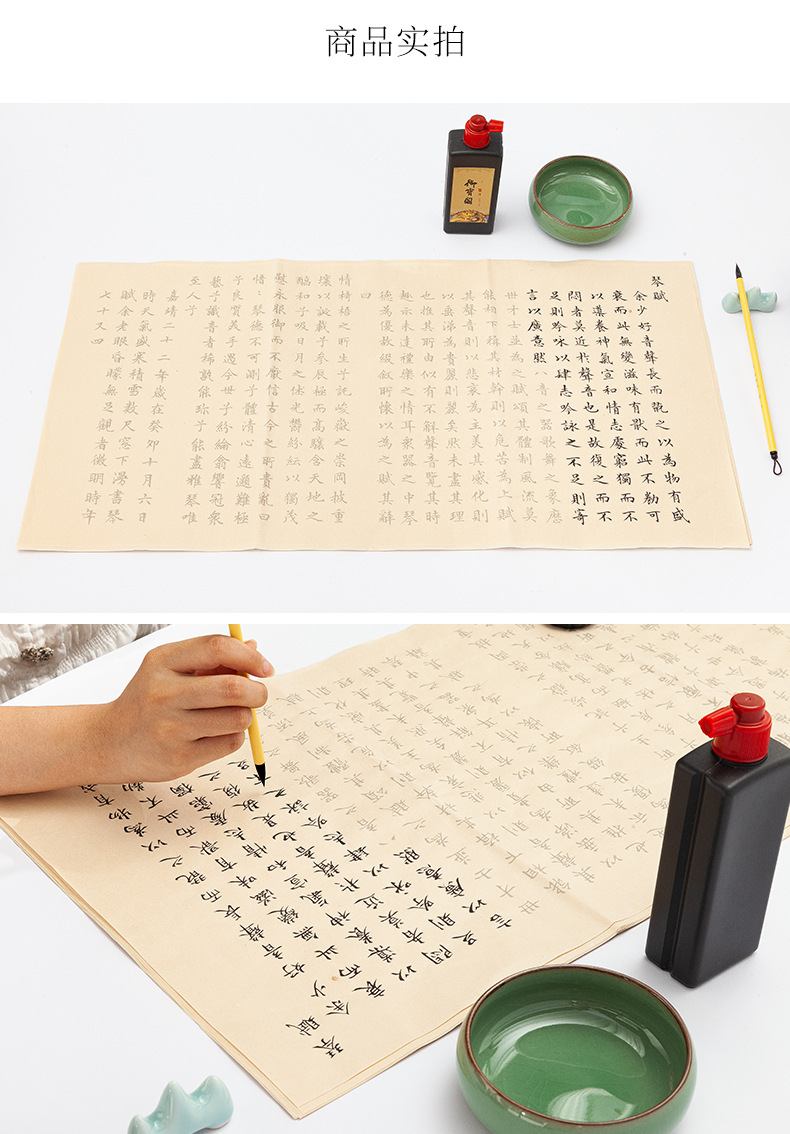 商品实拍
御寶閣
琴賦
余少好音聲長而翫之以為物有盛
衰而此無變滋味有猒而此不勌可
以導養神氣宣和情志處窮獨而不
悶者莫近於聲音也是故復之而不
足則吟咏以肆志吟詠之不足則寄
言以廣意然八音之器歌舞之象歷
世才士並為之賦頌其體制風流莫
能相下稱其材幹則以危苦為上賦
其聲音則以悲哀為主美其感化則
以垂涕為貴麗則麗矣然未盡其理
也推其所由似有不解聲音覽其時
趣亦未達禮樂之情耳衆器之中琴
德為優故綴叙所懷以為之賦其辭
曰
惟椅梧之所生兮託峻嶽之崇岡披重
壤以誕載兮參辰極而高驤含天地之
醕和兮吸日月之休光鬱紛紜以獨茂
慰永服御而不厭信古今之所貴亂曰
愔愔琴德不可測兮體清心遠邈難極
兮良質美手遇今世兮紛綸翕響冠衆
藝兮識音者稀孰能珍兮能盡雅琴唯
至人兮
嘉靖二十二年歲在癸卯十月六日
時天氣盛寒積雪數尺窓下漫書琴
賦余老眼昏矇無足觀者徵明時年
七十又四